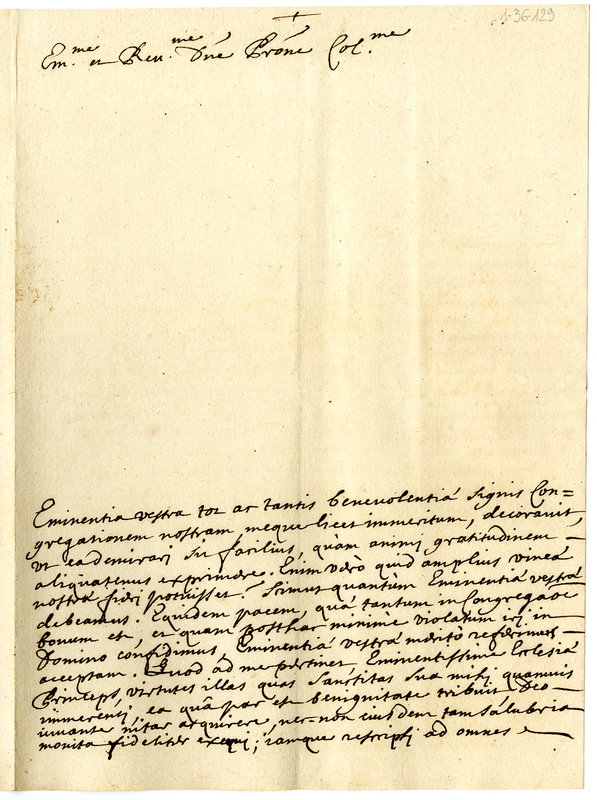 1-36-129
+
Em.me et Reu.me Dne Prône Col.me
Eminentia vestra tot ac tantis benevolentiá signis Con=
gregationem nostram, meque licet immeritum, decoravit,
vt ea demirari sit facilius, quàm animj gratitudinem
aliquatenus exprimere. Enim verò quid amplius vineá
nostrá fieri potuisset? Scimus quantùm Eminentiá vestrá
debeamus. Equidem pacem, quá tantum in Congregaõe
bonum est, et quam posthac minime violatum irj in
Domino confidimus, Eminentiá vestrá meritò referimus
acceptam. Quod ad me pertinet, Eminentissime Ecclesiá
Princeps, virtutes illas quas Sanctitas Sua mihj quamvis
immerentj, ea quâ par est benignitate tribuit Deo
iuvante nitar acquirere, nec-non eiusdem tam salubria
monita fideliter exequi; iamque rescripsj ad omnes